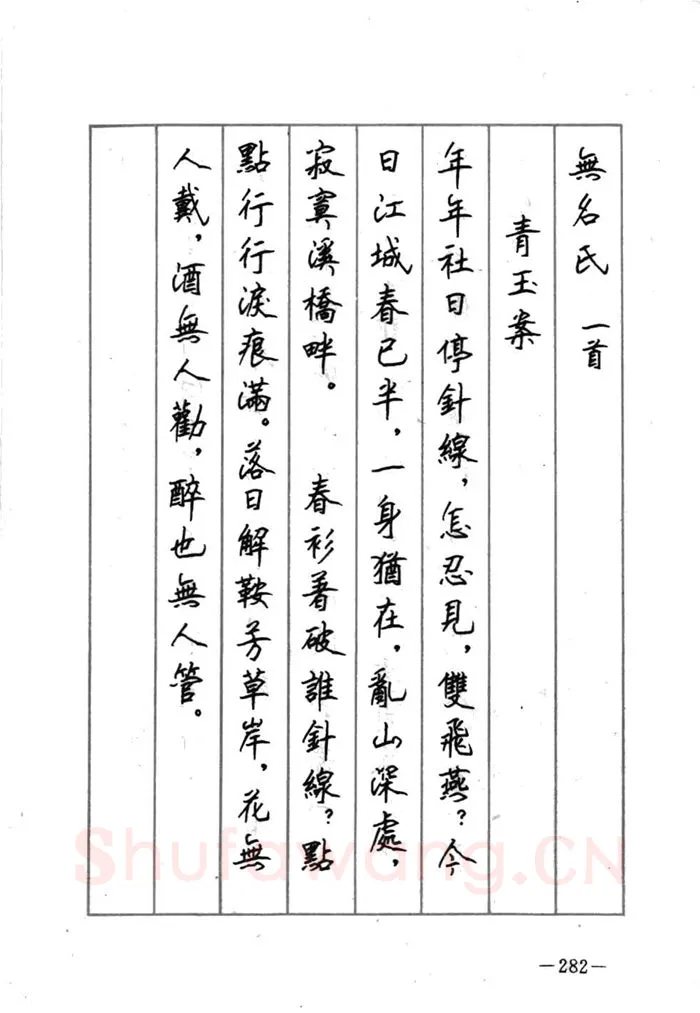 無名氏 一首
青玉案
年年社日停針線，怎忍見，雙飛燕？今
日江城春已半，一身猶在，亂山深處，
寂寞溪橋畔。 春衫著破誰針線？點
點行行淚痕滿。落日解鞍芳草岸，花無
人戴，酒無人勸，醉也無人管。
Shufawang.CN
—282—